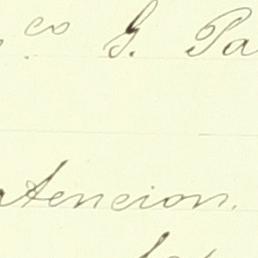 co G. Pa
Atencion.